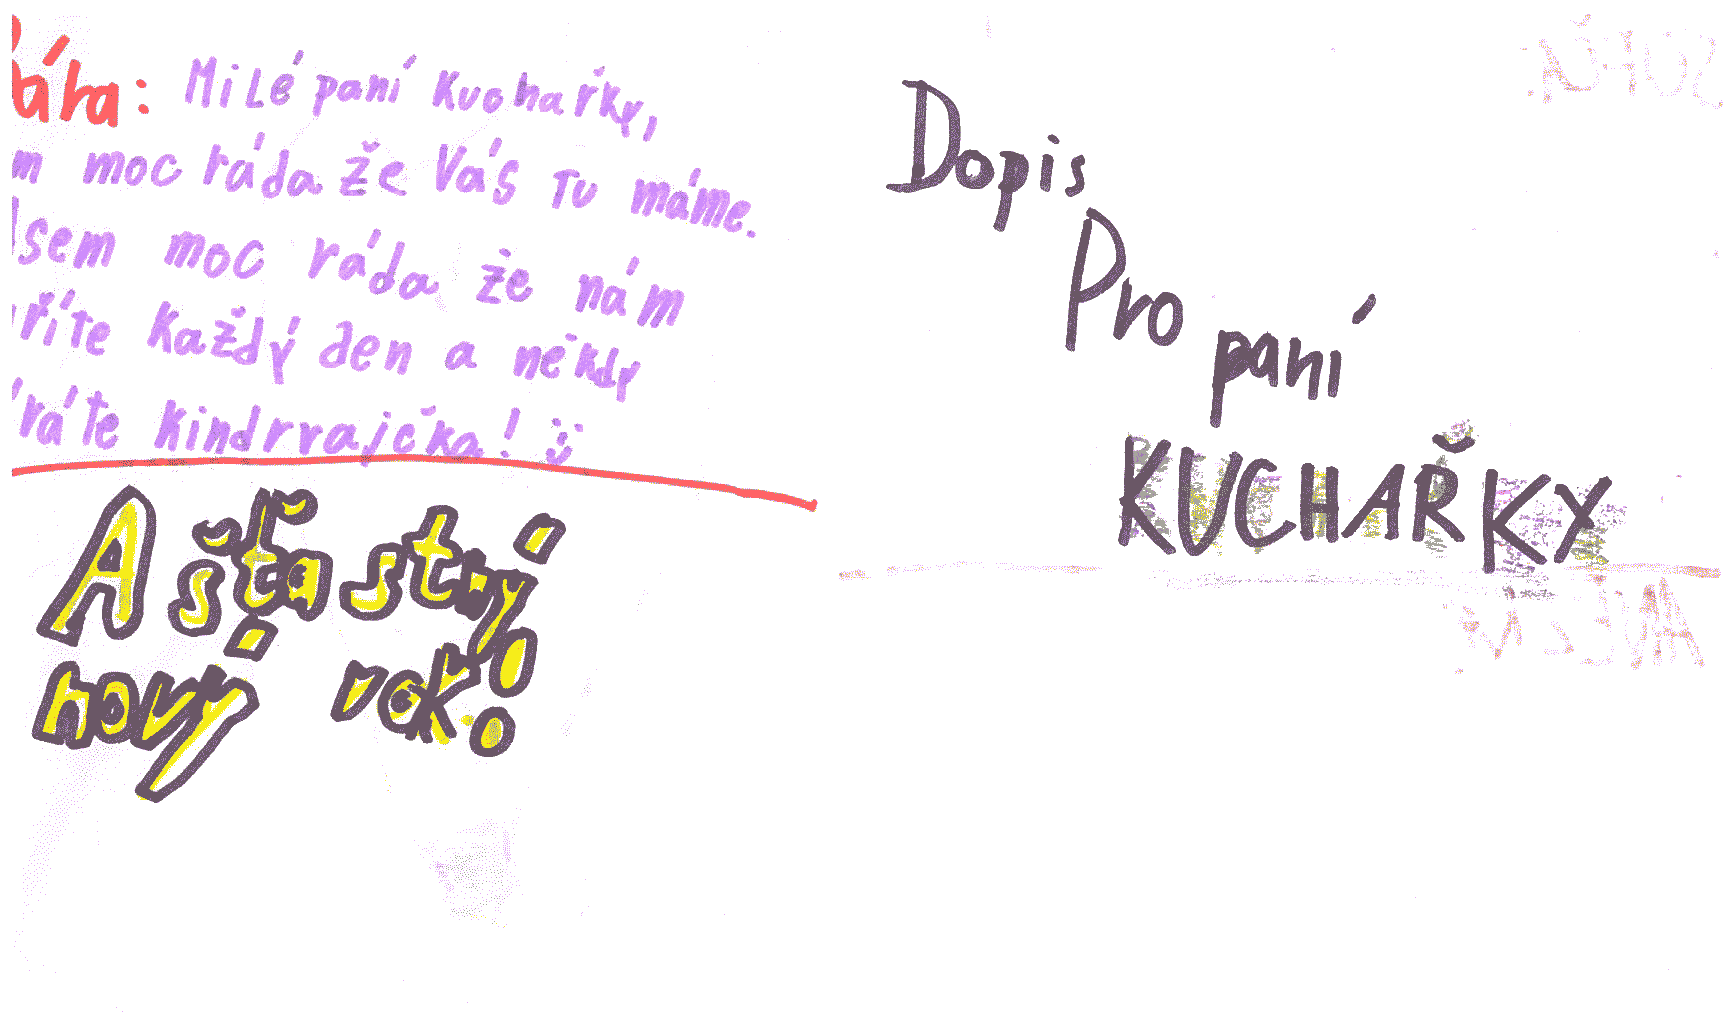 Milé paní Kuchařky,
moc ráda že Vás tu máme.
Jsem moc ráda že nám
každý den a někdy
kindrvajčka!
A šťastný
nový rok!
Dopis
Pro
paní
KUCHAŘKY